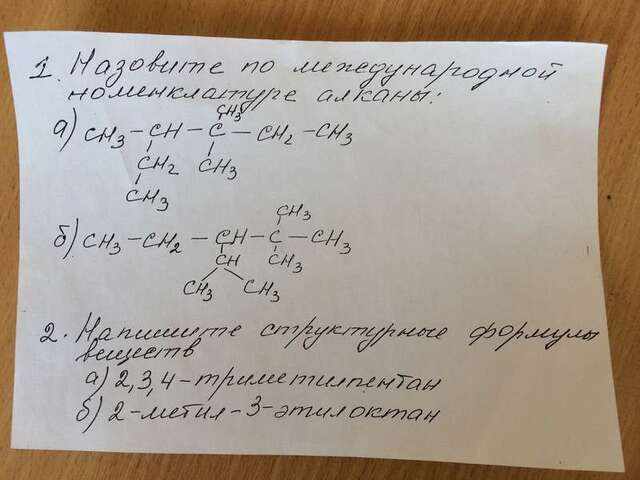 1. Назовите по международной
номенклатуре алканы:
CH3
а) CH3 – CH – C – CH2 – CH3
CH2 CH3
CH3
CH3
б) CH3 – CH2 – CH – C – CH3
CH CH3
CH3 CH3
2. Напишите структурные формулы
веществ
а) 2,3,4-триметилпентан
б) 2-метил-3-этилоктан